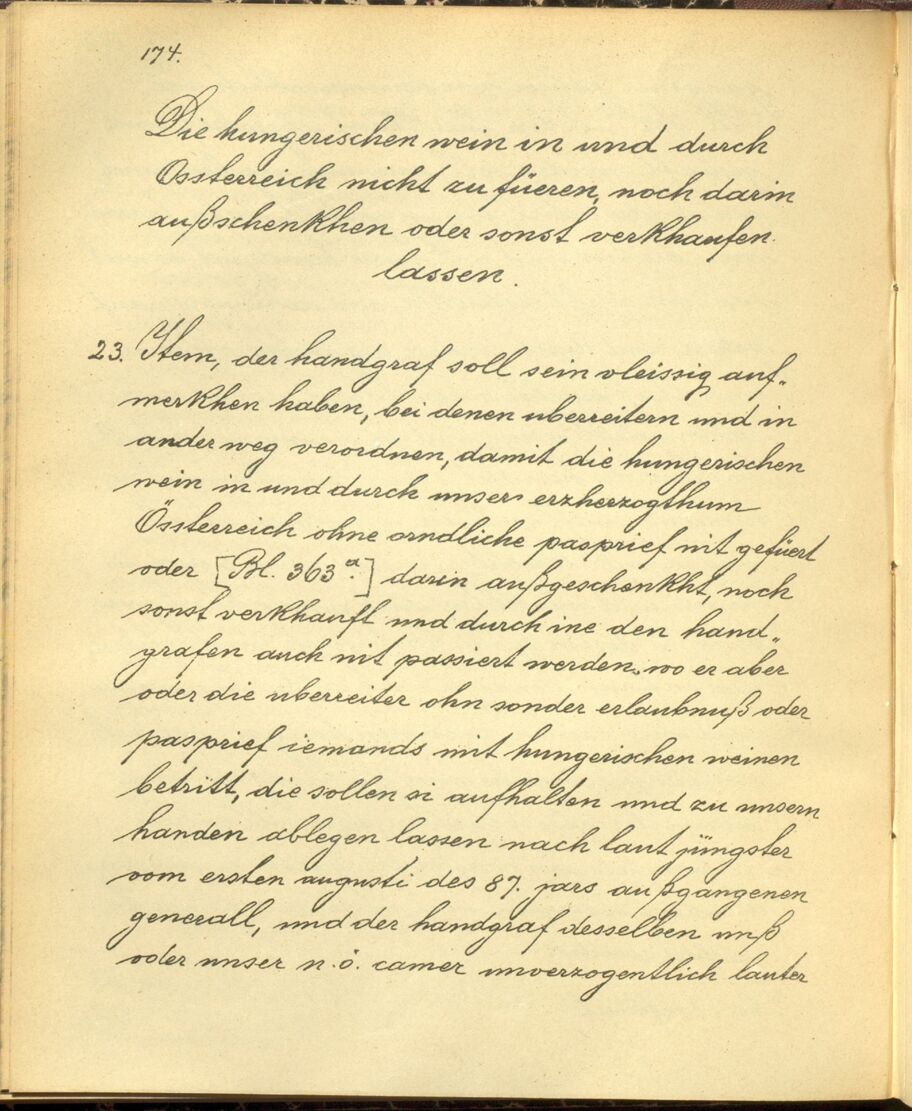 174.
Die hungerischen wein in und durch
Össterreich nicht zu füeren, noch darin
außschenkhen oder sonst verkhaufen
lassen.
23. Item, der handgraf soll sein vleissig auf-
merkhen haben, bei denen uberreitern und in
ander weg verordnen, damit die hungerischen
wein in und durch unser erzherzogthum
Össterreich ohne orndliche pasprief nit gefüert
oder [Bl. 363 a.] darin außgeschenkht, noch
sonst verkhauft und durch ine den hand-
grafen auch nit passiert werden. wo er aber
oder die uberreiter ohn sonder erlaubnuß oder
pasprief iemands mit hungerischen weinen
betritt, die sollen si aufhalten und zu unsern
handen ablegen lassen nach laut jüngster
vom ersten augusti des 87. jars außgangenen
generall, und der handgraf desselben unß
oder unser n. ö. camer unverzogentlich lauter